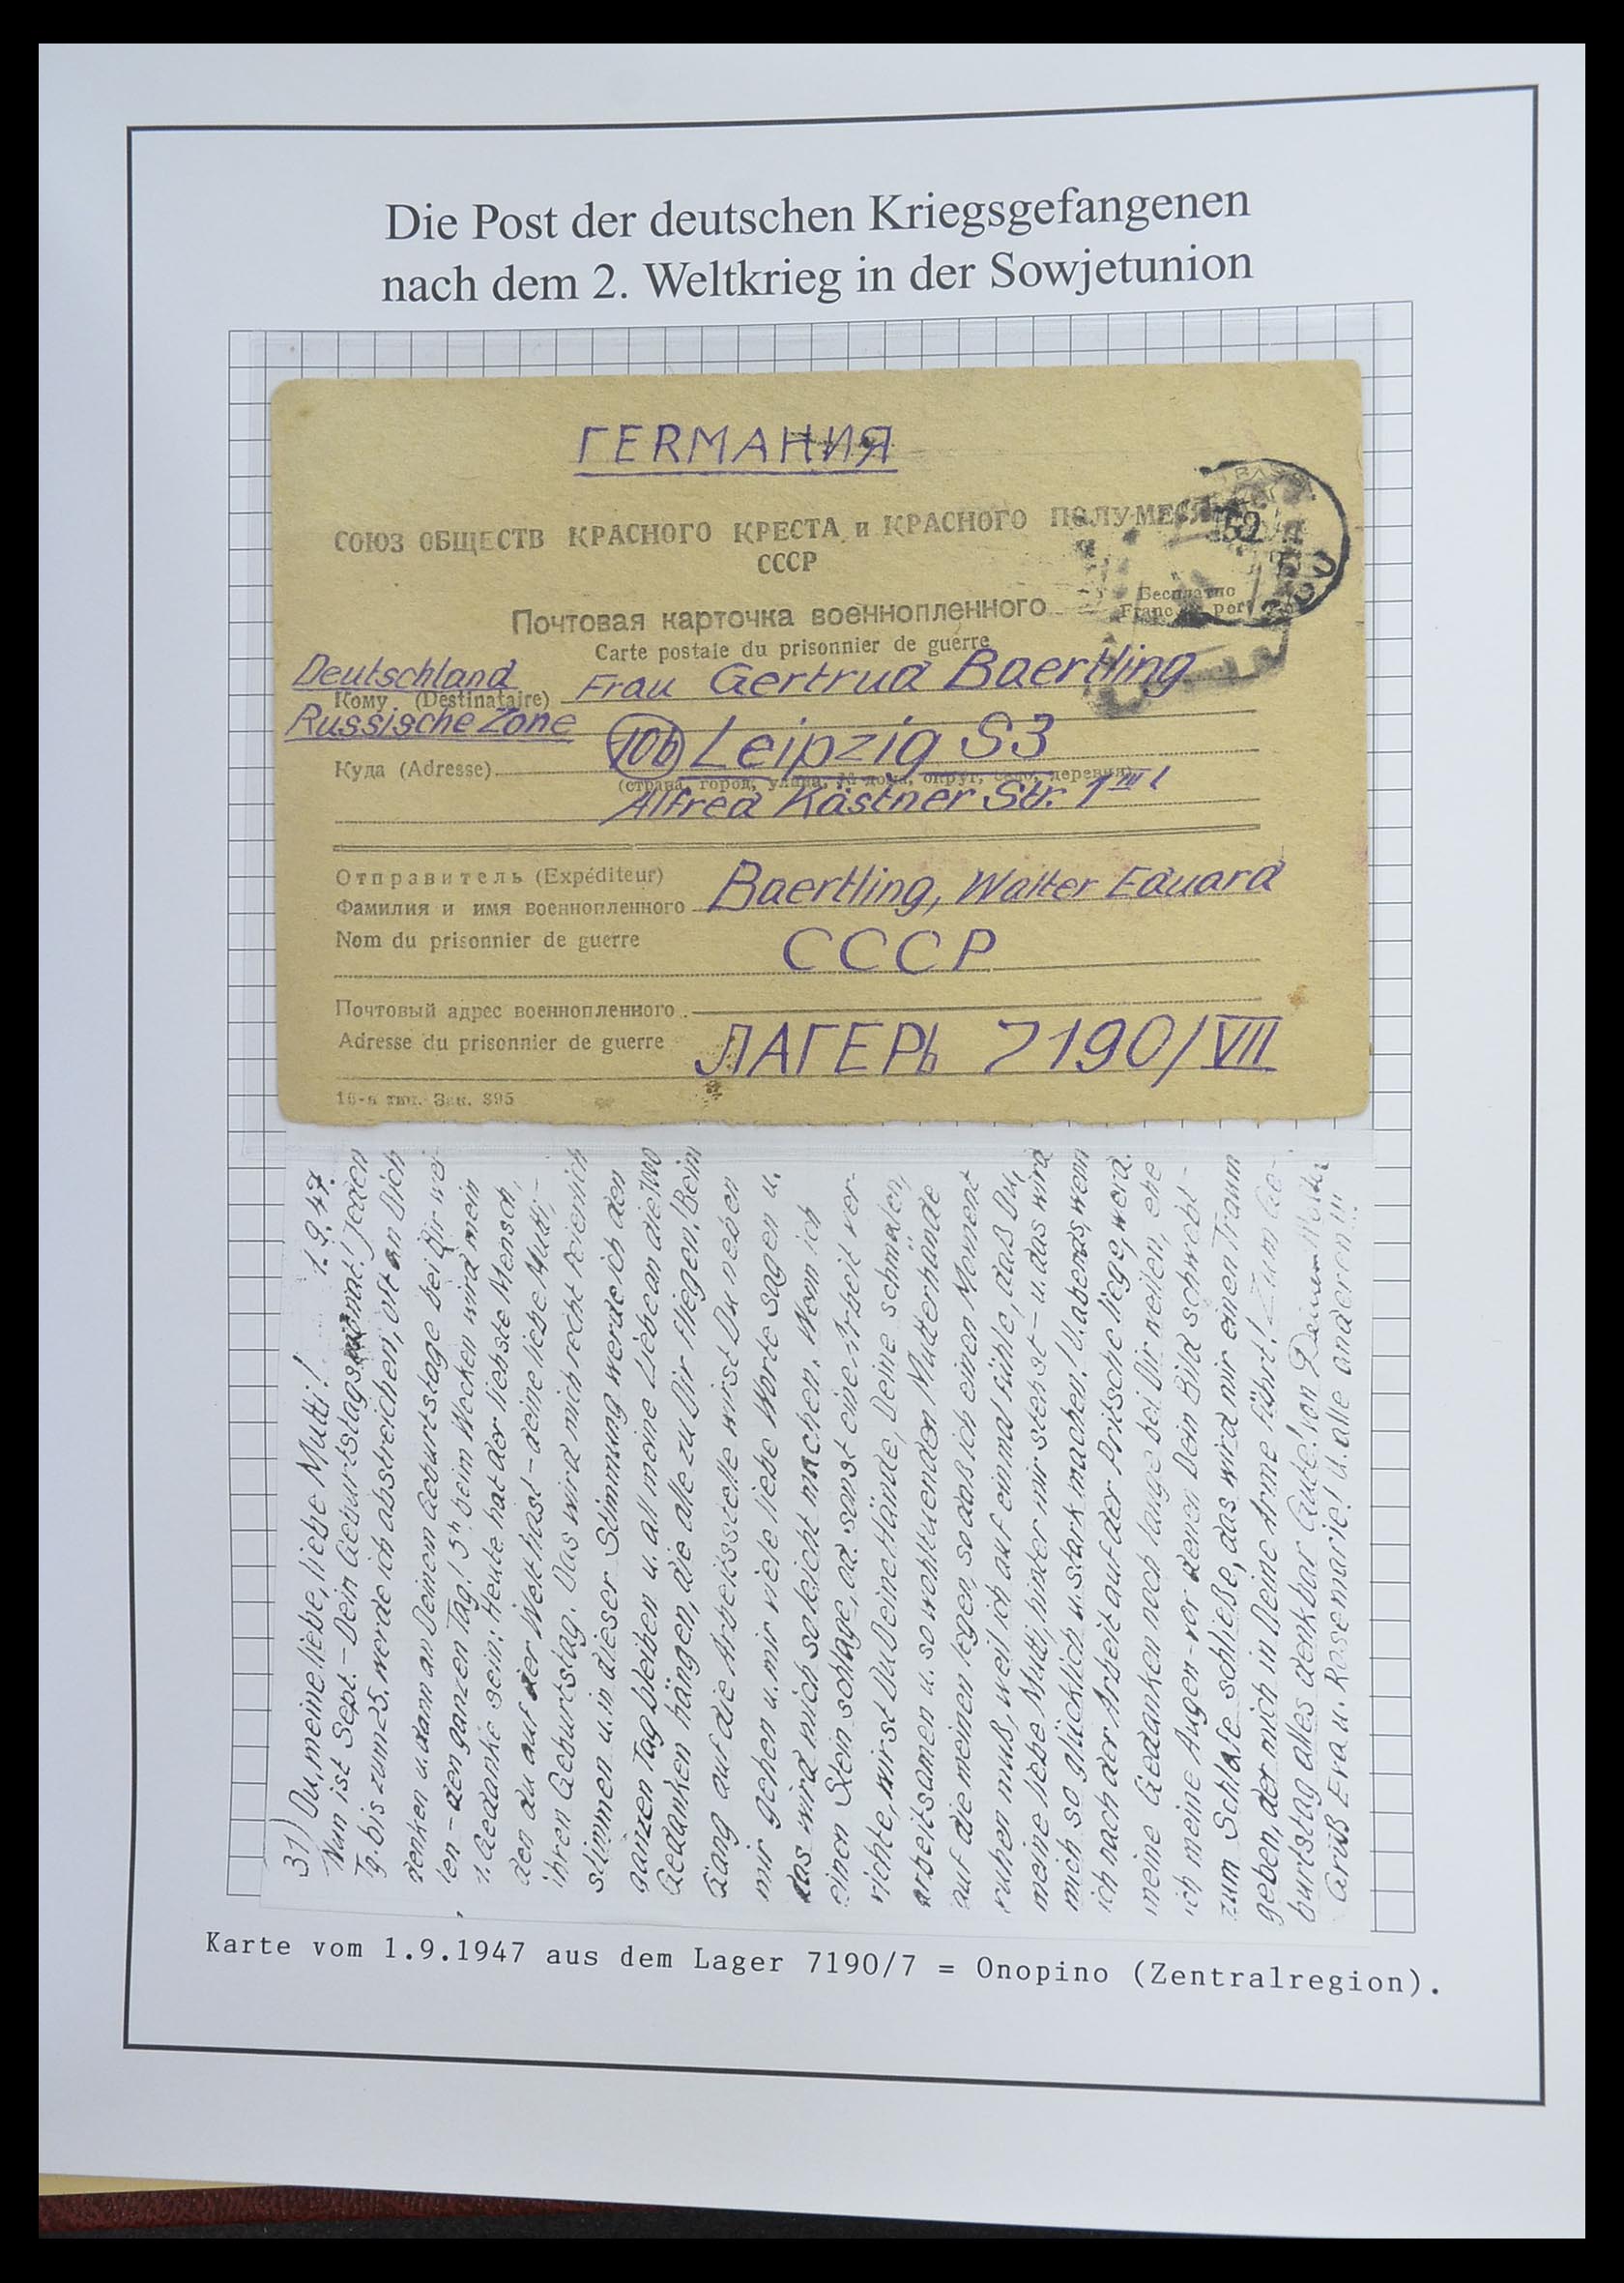 Die Post der deutschen Kriegsgefangenen
nach dem 2. Weltkrieg in der Sowjetunion
ГЕRМАНИЯ
СОЮЗ ОБЩЕСТВ КРАСНОГО КРЕСТА и КРАСНОГО
СССР
Почтовая карточка военнопленного
Бесплатно
Franc de port
Carte postale du prisonnier de guerre
Deutschland
Кому (Destinataire) Frau Gertrud Baertling
Russische Zone
10b Leipzig S3
Куда (Adresse)
(страна, город, улица, № дома, округ, село, деревня)
Alfred Kästner Str. 1 III l
Отправитель (Expéditeur)
Фамилия и имя военнопленного Baertling, Walter Eduard
Nom du prisonnier de guerre
СССР
Почтовый адрес военнопленного
Adresse du prisonnier de guerre ЛАГЕРЬ 7190/VII
16-я тип. Зак. 395
31) Du, meine liebe, liebe Mutti! 1.9.47.
Nun ist Sept. – Dein Geburtstagsmonat! Jeden
Tg. bis zum 25. werde ich abstreichen, oft an Dich
denken u. dann an Deinem Geburtstage bei Dir wei-
len – den ganzen Tag! 5h beim Wecken wird mein
1. Gedanke sein: Heute hat der liebste Mensch,
den du auf der Welt hast – deine liebe Mutti, –
ihren Geburtstag. Das wird mich recht feierlich
stimmen u. in dieser Stimmung werde ich den
ganzen Tag bleiben u. all meine Liebe an die
Gedanken hängen, die alle zu Dir fliegen. Beim
Gang auf die Arbeitsstelle wirst Du neben
mir gehen u. mir viele liebe Worte sagen u.
das wird mich so leicht machen. Wenn ich
einen Stein schlage, od. sonst eine Arbeit ver-
richte, wirst Du Deine Hände, Deine schmalen,
arbeitsamen u. so wohltuenden Mutterhände
auf die meinen legen, so daß ich einen Moment
ruhen muß, weil ich auf einmal fühle, daß Du,
meine liebe Mutti, hinter mir stehst – u. das wird
mich so glücklich u. stark machen! U. abends, wenn
ich nach der Arbeit auf der Pritsche liege, werd.
meine Gedanken noch lange bei Dir weilen, ehe
ich meine Augen – vor denen Dein Bild schwebt –
zum Schlafe schließe, das wird mir einen Traum
geben, der mich in Deine Arme führt! Zum Ge-
burtstag alles denkbar Gute! von Deinem
Gruß Eva u. Rosemarie! U. alle anderen!!!
Karte vom 1.9.1947 aus dem Lager 7190/7 = Onopino (Zentralregion).